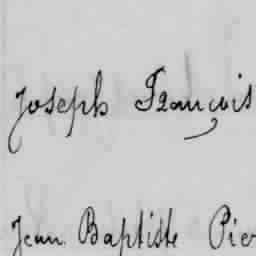 Joseph François
Jean Baptiste